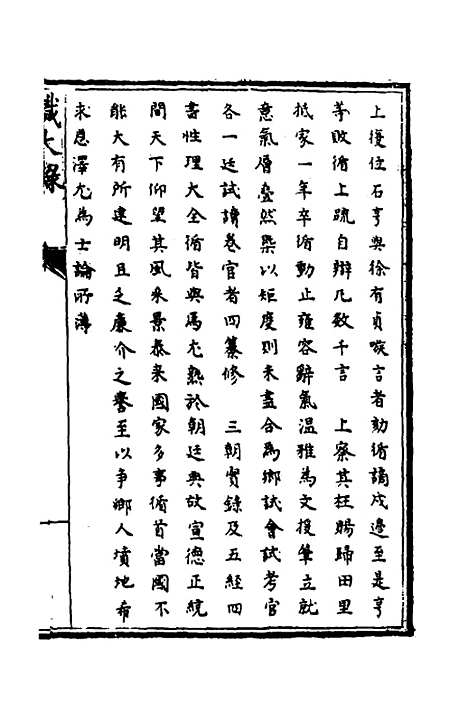 上復位石亨與徐有貞嗾言者劾循謫戍邊至是亨
等敗循上疏自辯凡数千言　上察其枉賜歸田里
抵家一年卒循動止雍容辭氣温雅為文援筆立就
意氣層疊然槩以矩度則未盡合為鄉試會試考官
各一廷試讀卷官者四纂修　三朝實録及五經四
書性理大全循皆與焉尤熟於朝廷典故宣德正統
間天下仰望其風采景泰来國家多事循首當國不
能大有所建明且乏廉介之譽至以争鄉人墳地希
求恩澤尤為士論所薄
識大録